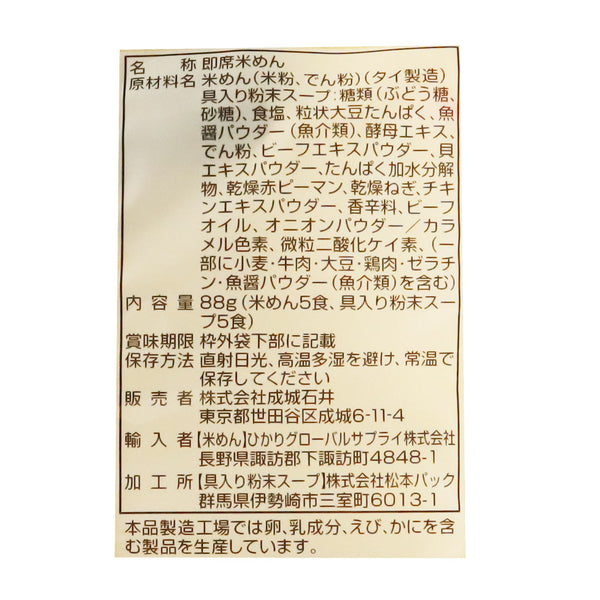 名称 即席米めん
原材料名 米めん(米粉、でん粉)(タイ製造)
具入り粉末スープ:糖類(ぶどう糖、
砂糖)、食塩、粒状大豆たんぱく、魚
醤パウダー(魚介類)、酵母エキス、
でん粉、ビーフエキスパウダー、貝
エキスパウダー、たんぱく加水分解
物、乾燥赤ピーマン、乾燥ねぎ、チキ
ンエキスパウダー、香辛料、ビーフ
オイル、オニオンパウダー/カラ
メル色素、微粒二酸化ケイ素、(一
部に小麦・牛肉・大豆・鶏肉・ゼラチ
ン・魚醤パウダー(魚介類)を含む)
内容量 88g(米めん5食、具入り粉末スー
プ5食)
賞味期限 枠外袋下部に記載
保存方法 直射日光、高温多湿を避け、常温で
保存してください
販売者 株式会社成城石井
東京都世田谷区成城6-11-4
輸入者 【米めん】ひかりグローバルサプライ株式会社
長野県諏訪郡下諏訪町4848-1
加工所 【具入り粉末スープ】株式会社松本パック
群馬県伊勢崎市三室町6013-1
本品製造工場では卵、乳成分、えび、かにを含
む製品を生産しています。